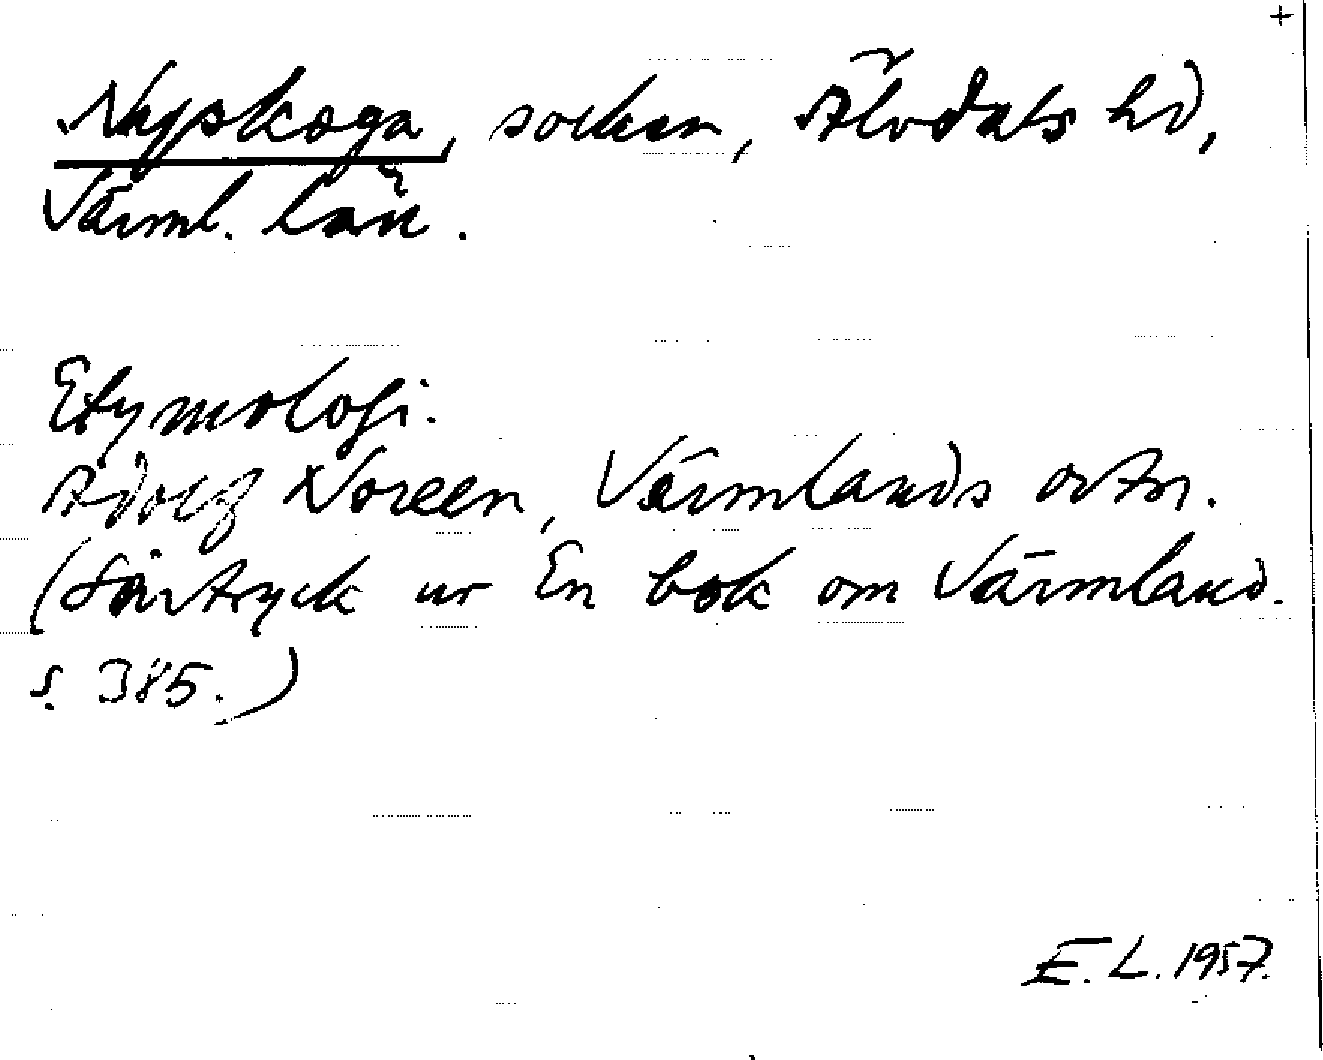 +
Nyskoga, socken, Älvdals hd,
Värml. län.
Etymologi.
Adolf Noreen, Värmlands ortn.
(Särtryck ur En bok om Värmland.
s. 385.)
E. L. 1957.